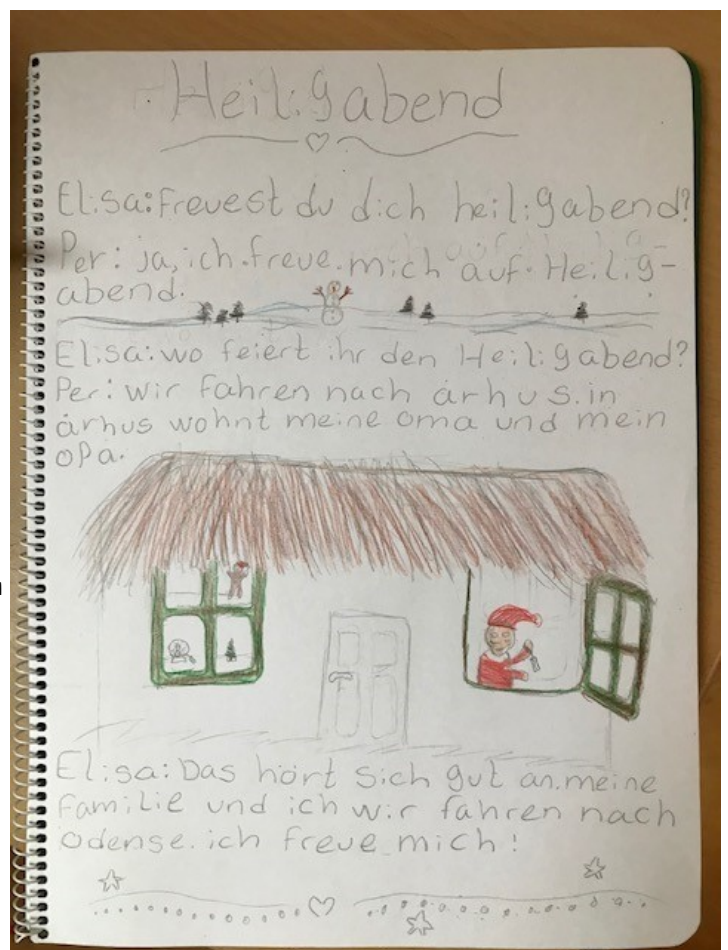 Heiligabend
Elisa: Freuest du dich heiligabend?
Per: ja, ich freue mich auf Heilig-
abend.
Elisa: wo feiert ihr den Heiligabend?
Per: wir fahren nach århus. in
århus wohnt meine oma und mein
opa.
Elisa: Das hört sich gut an. meine
Familie und ich wir fahren nach
Odense. ich freue mich!